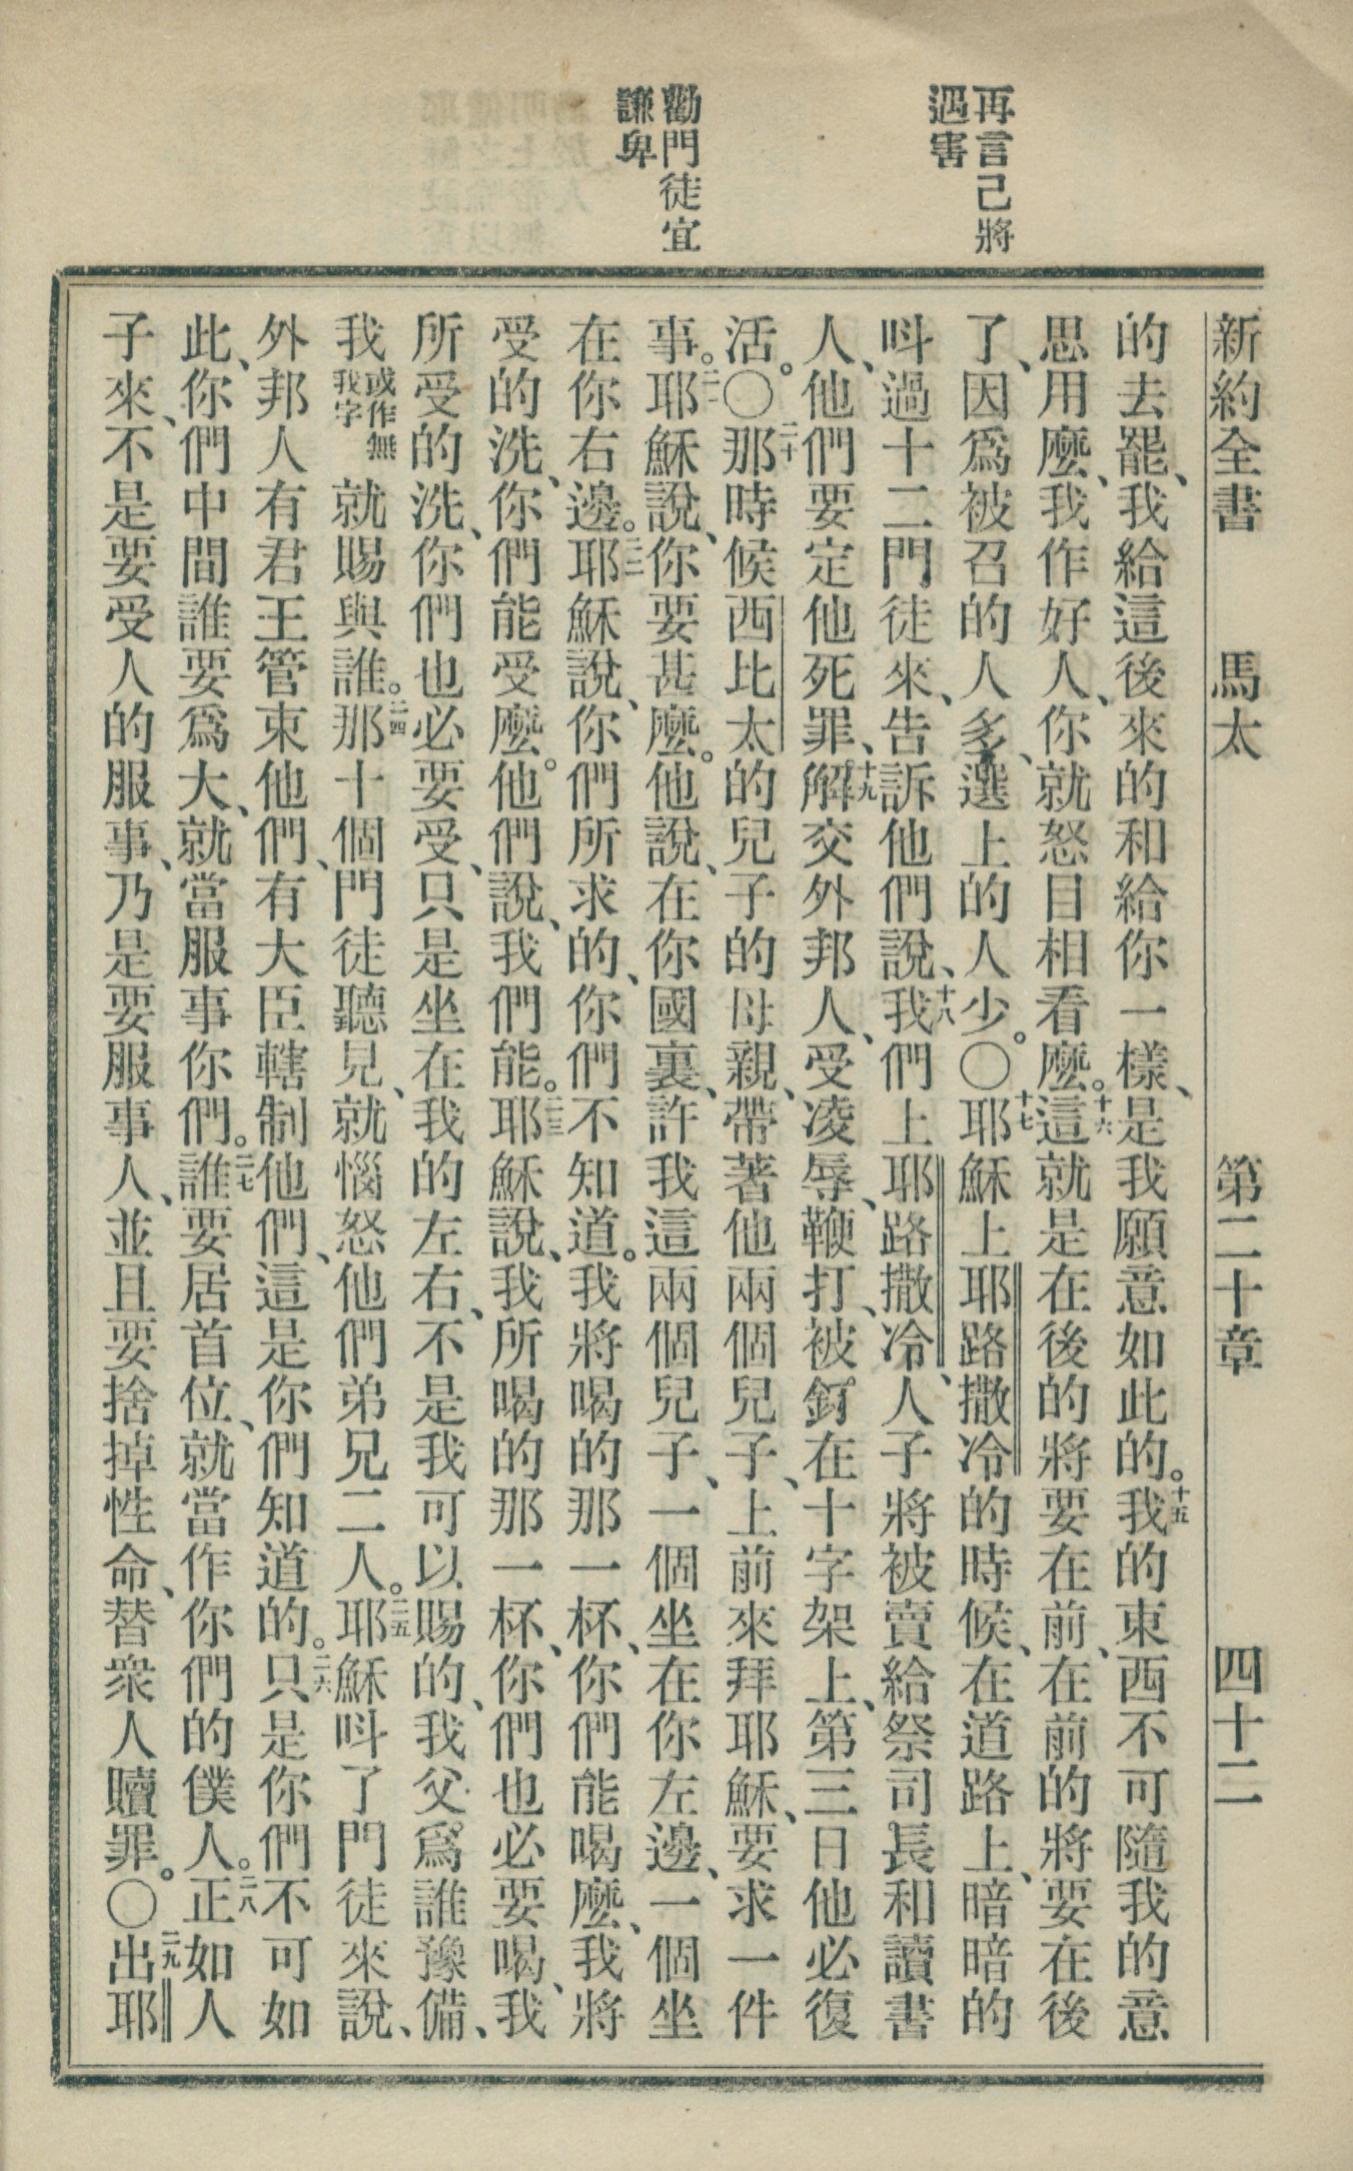 再言己將
遇害
勸門徒宜
謙卑
新約全書　馬太　第二十章　四十二
的去罷、我給這後來的和給你一樣、是我願意如此的。十五我的東西不可隨我的意
思用麼、我作好人、你就怒目相看麼。十六這就是在後的將要在前、在前的將要在後
了、因爲被召的人多、選上的人少。〇十七耶穌上耶路撒冷的時候、在道路上、暗暗的
呌過十二門徒來、告訴他們說、十八我們上耶路撒冷、人子將被賣給祭司長和讀書
人、他們要定他死罪、十九解交外邦人、受凌辱、鞭打、被釘在十字架上、第三日他必復
活。〇二十那時候西比太的兒子的母親、帶著他兩個兒子、上前來拜耶穌、要求一件
事。二一耶穌說、你要甚麼。他說、在你國裏、許我這兩個兒子、一個坐在你左邊、一個坐
在你右邊。二二耶穌說、你們所求的、你們不知道。我將喝的那一杯、你們能喝麼、我將
受的洗、你們能受麼。他們說、我們能。二三耶穌說、我所喝的那一杯、你們也必要喝、我
所受的洗、你們也必要受、只是坐在我的左右、不是我可以賜的、我父爲誰豫備、
我或作無我字就賜與誰。二四那十個門徒聽見、就惱怒他們弟兄二人。二五耶穌呌了門徒來說、
外邦人有君王管束他們、有大臣轄制他們、這是你們知道的。二六只是你們不可如
此、你們中間誰要爲大、就當服事你們。二七誰要居首位、就當作你們的僕人。二八正如人
子來、不是要受人的服事、乃是要服事人、並且要捨掉性命、替衆人贖罪。〇二九出耶